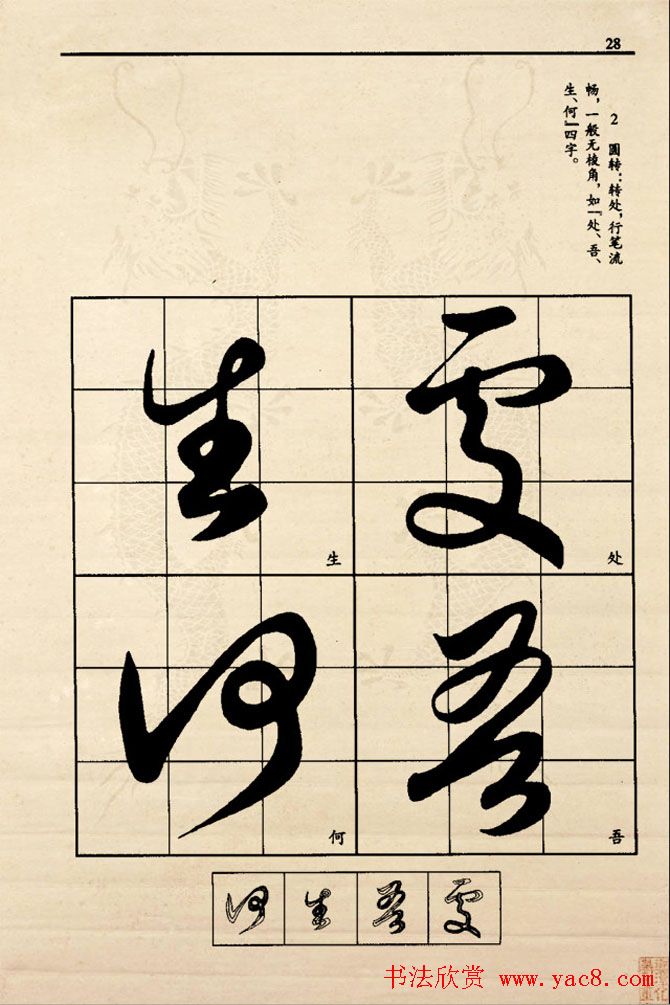 28
2 圆转：转处，行笔流
畅，一般无棱角，如『处、吾、
生、何』四字。
處
处
吾
吾
生
生
何
何
何 生 吾 處
书法欣赏 www.yac8.com